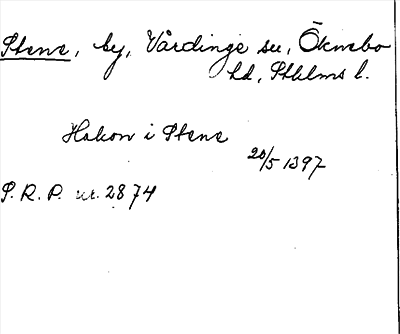 Stene, by, Vårdinge sn, Öknebo
hd, Sthlms l.
Hakon i Stene
20/5 1397
S.R.P. nr. 2874